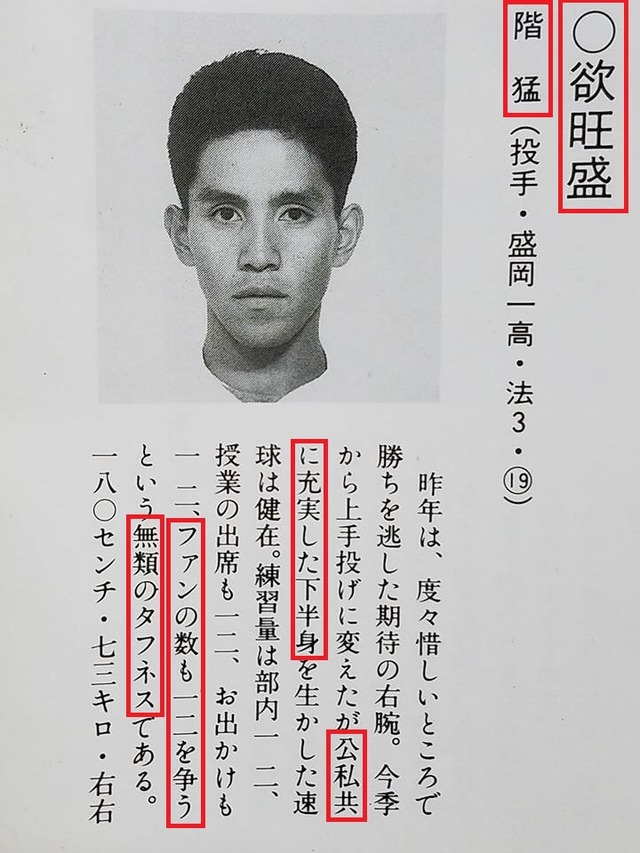 〇欲旺盛
階 猛(投手・盛岡一高・法3・⑲)
昨年は、度々惜しいところで
勝ちを逃した期待の右腕。今季
から上手投げに変えたが公私共
に充実した下半身を生かした速
球は健在。練習量は部内一二、
授業の出席も一二、お出かけも
一二、ファンの数も一二を争う
という無類のタフネスである。
一八〇センチ・七三キロ・右右